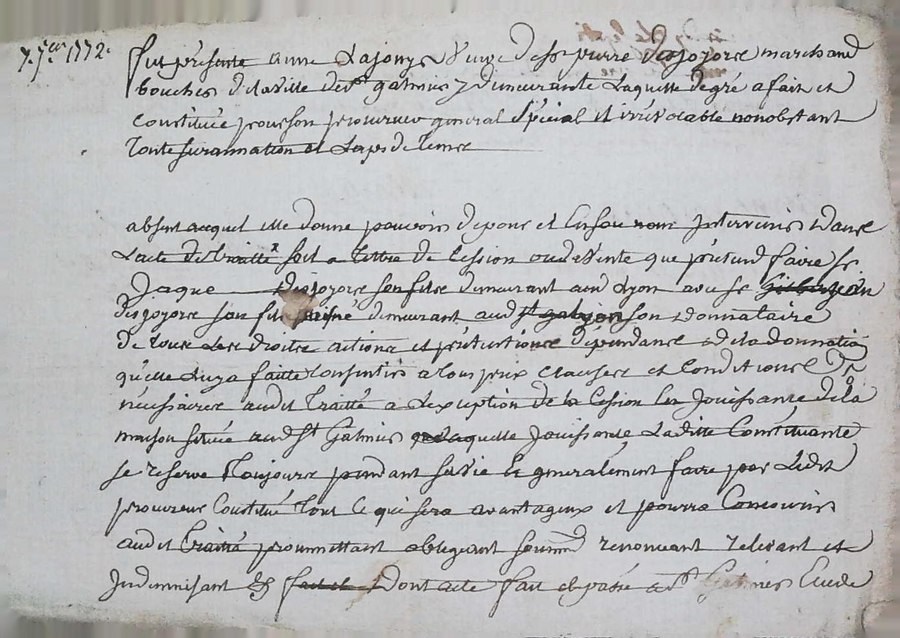 7. 7.bre 1772.
fut présente anne Lajonys veuve de sr pierre Desjoyore marchand
boucher de la ville de st galmier y demeurante Laquelle de gré a fait et
constituée pour son procureur général spécial et irrévocable nonobstant
toute surannation et Laps de tems
absent auquel elle donne pouvoir de pour et En son nom Intervenir Dans
L'acte de traitté soit a tittre de Cession ou de vente que prétend faire sr
Jaque Desjoyore son fils demeurant aud Lyon avec sr
desjoyore son fils demeurant aud st son donnataire
De tous Les droits actions et prétentions dépendants de la donnation
qu'elle Luy a faitte Consentir a tous prix clauses et Conditions
nécessaires audit traitté a L'exception de la Cession En Jouissance de la
maison située aud st Galmier Laquelle Jouissance Laditte Constituante
se réserve toujours pendant sa vie Et généralement faire par Ledit
procureur Constitué tout ce qui sera avantageux et pourra Concourir
audit traitté promettant obligeant renonceant relevant et
Indemnisant & Dont acte fait et passé a st Galmier Etude